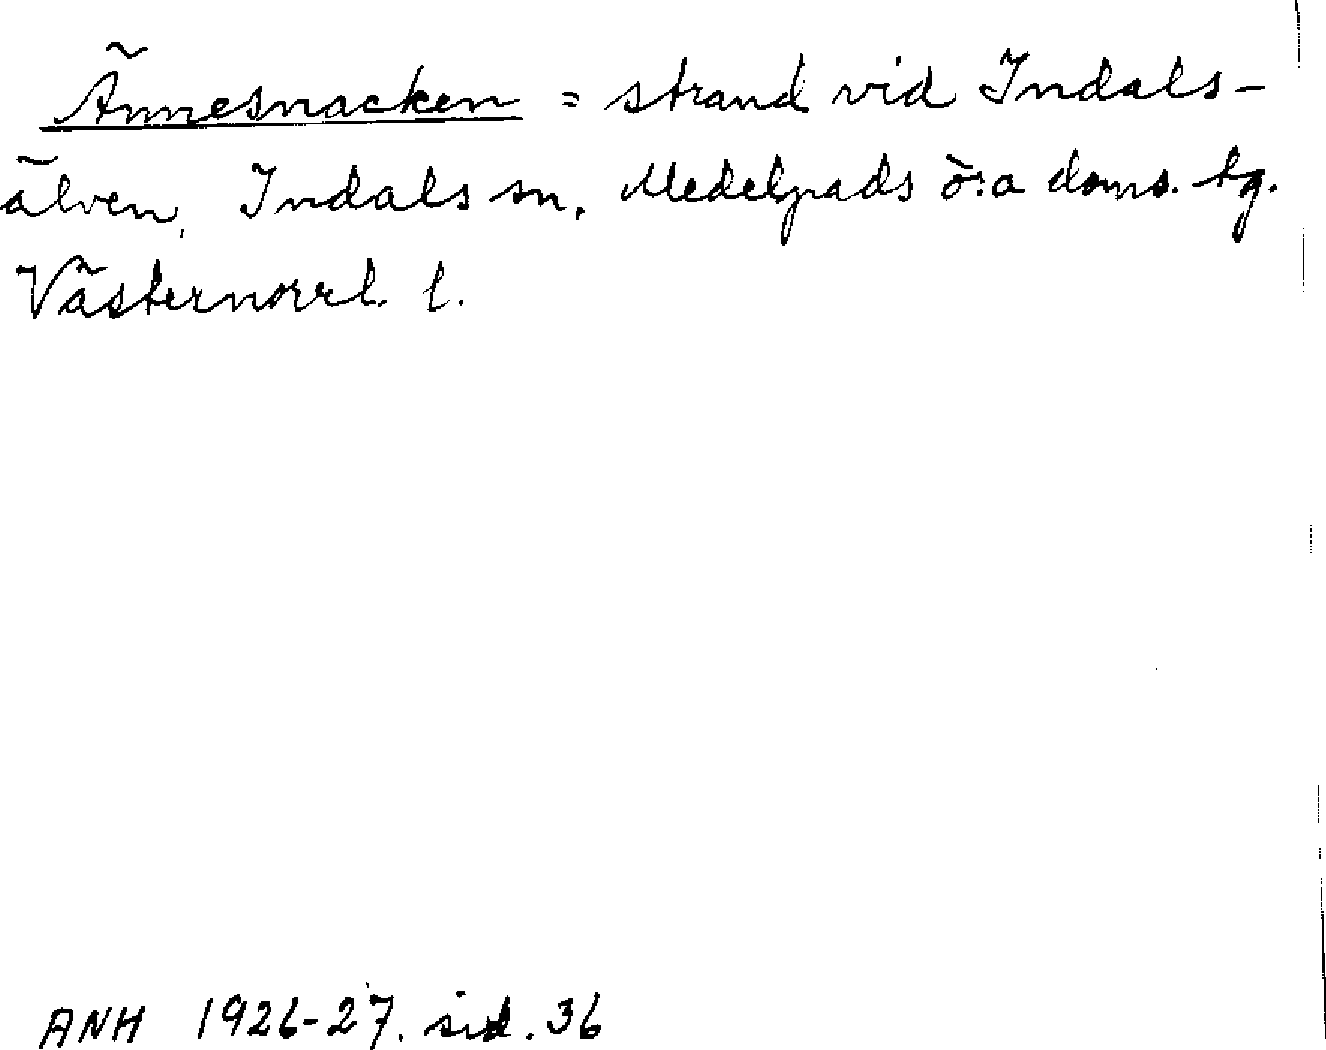 Ännesnacken = strand vid Indals-
älven, Indals sn, Medelpads ö:a doms. tg.
Västernorrl. l.
ANH 1926-27. sid. 36